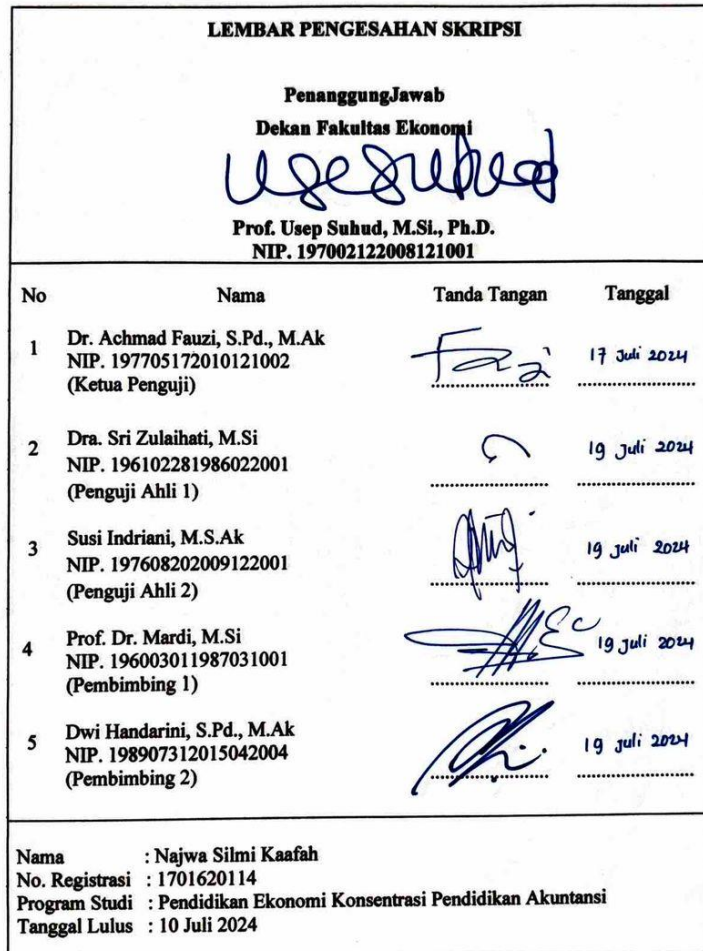 LEMBAR PENGESAHAN SKRIPSI
PenanggungJawab
Dekan Fakultas Ekonomi
Prof. Usep Suhud, M.Si., Ph.D.
NIP. 197002122008121001
No Nama Tanda Tangan Tanggal
1 Dr. Achmad Fauzi, S.Pd., M.Ak
NIP. 197705172010121002 17 Juli 2024
(Ketua Penguji)
2 Dra. Sri Zulaihati, M.Si 19 Juli 2024
NIP. 196102281986022001
(Penguji Ahli 1)
3 Susi Indriani, M.S.Ak 19 Juli 2024
NIP. 197608202009122001
(Penguji Ahli 2)
4 Prof. Dr. Mardi, M.Si 19 Juli 2024
NIP. 196003011987031001
(Pembimbing 1)
5 Dwi Handarini, S.Pd., M.Ak 19 Juli 2024
NIP. 198907312015042004
(Pembimbing 2)
Nama : Najwa Silmi Kaafah
No. Registrasi : 1701620114
Program Studi : Pendidikan Ekonomi Konsentrasi Pendidikan Akuntansi
Tanggal Lulus : 10 Juli 2024